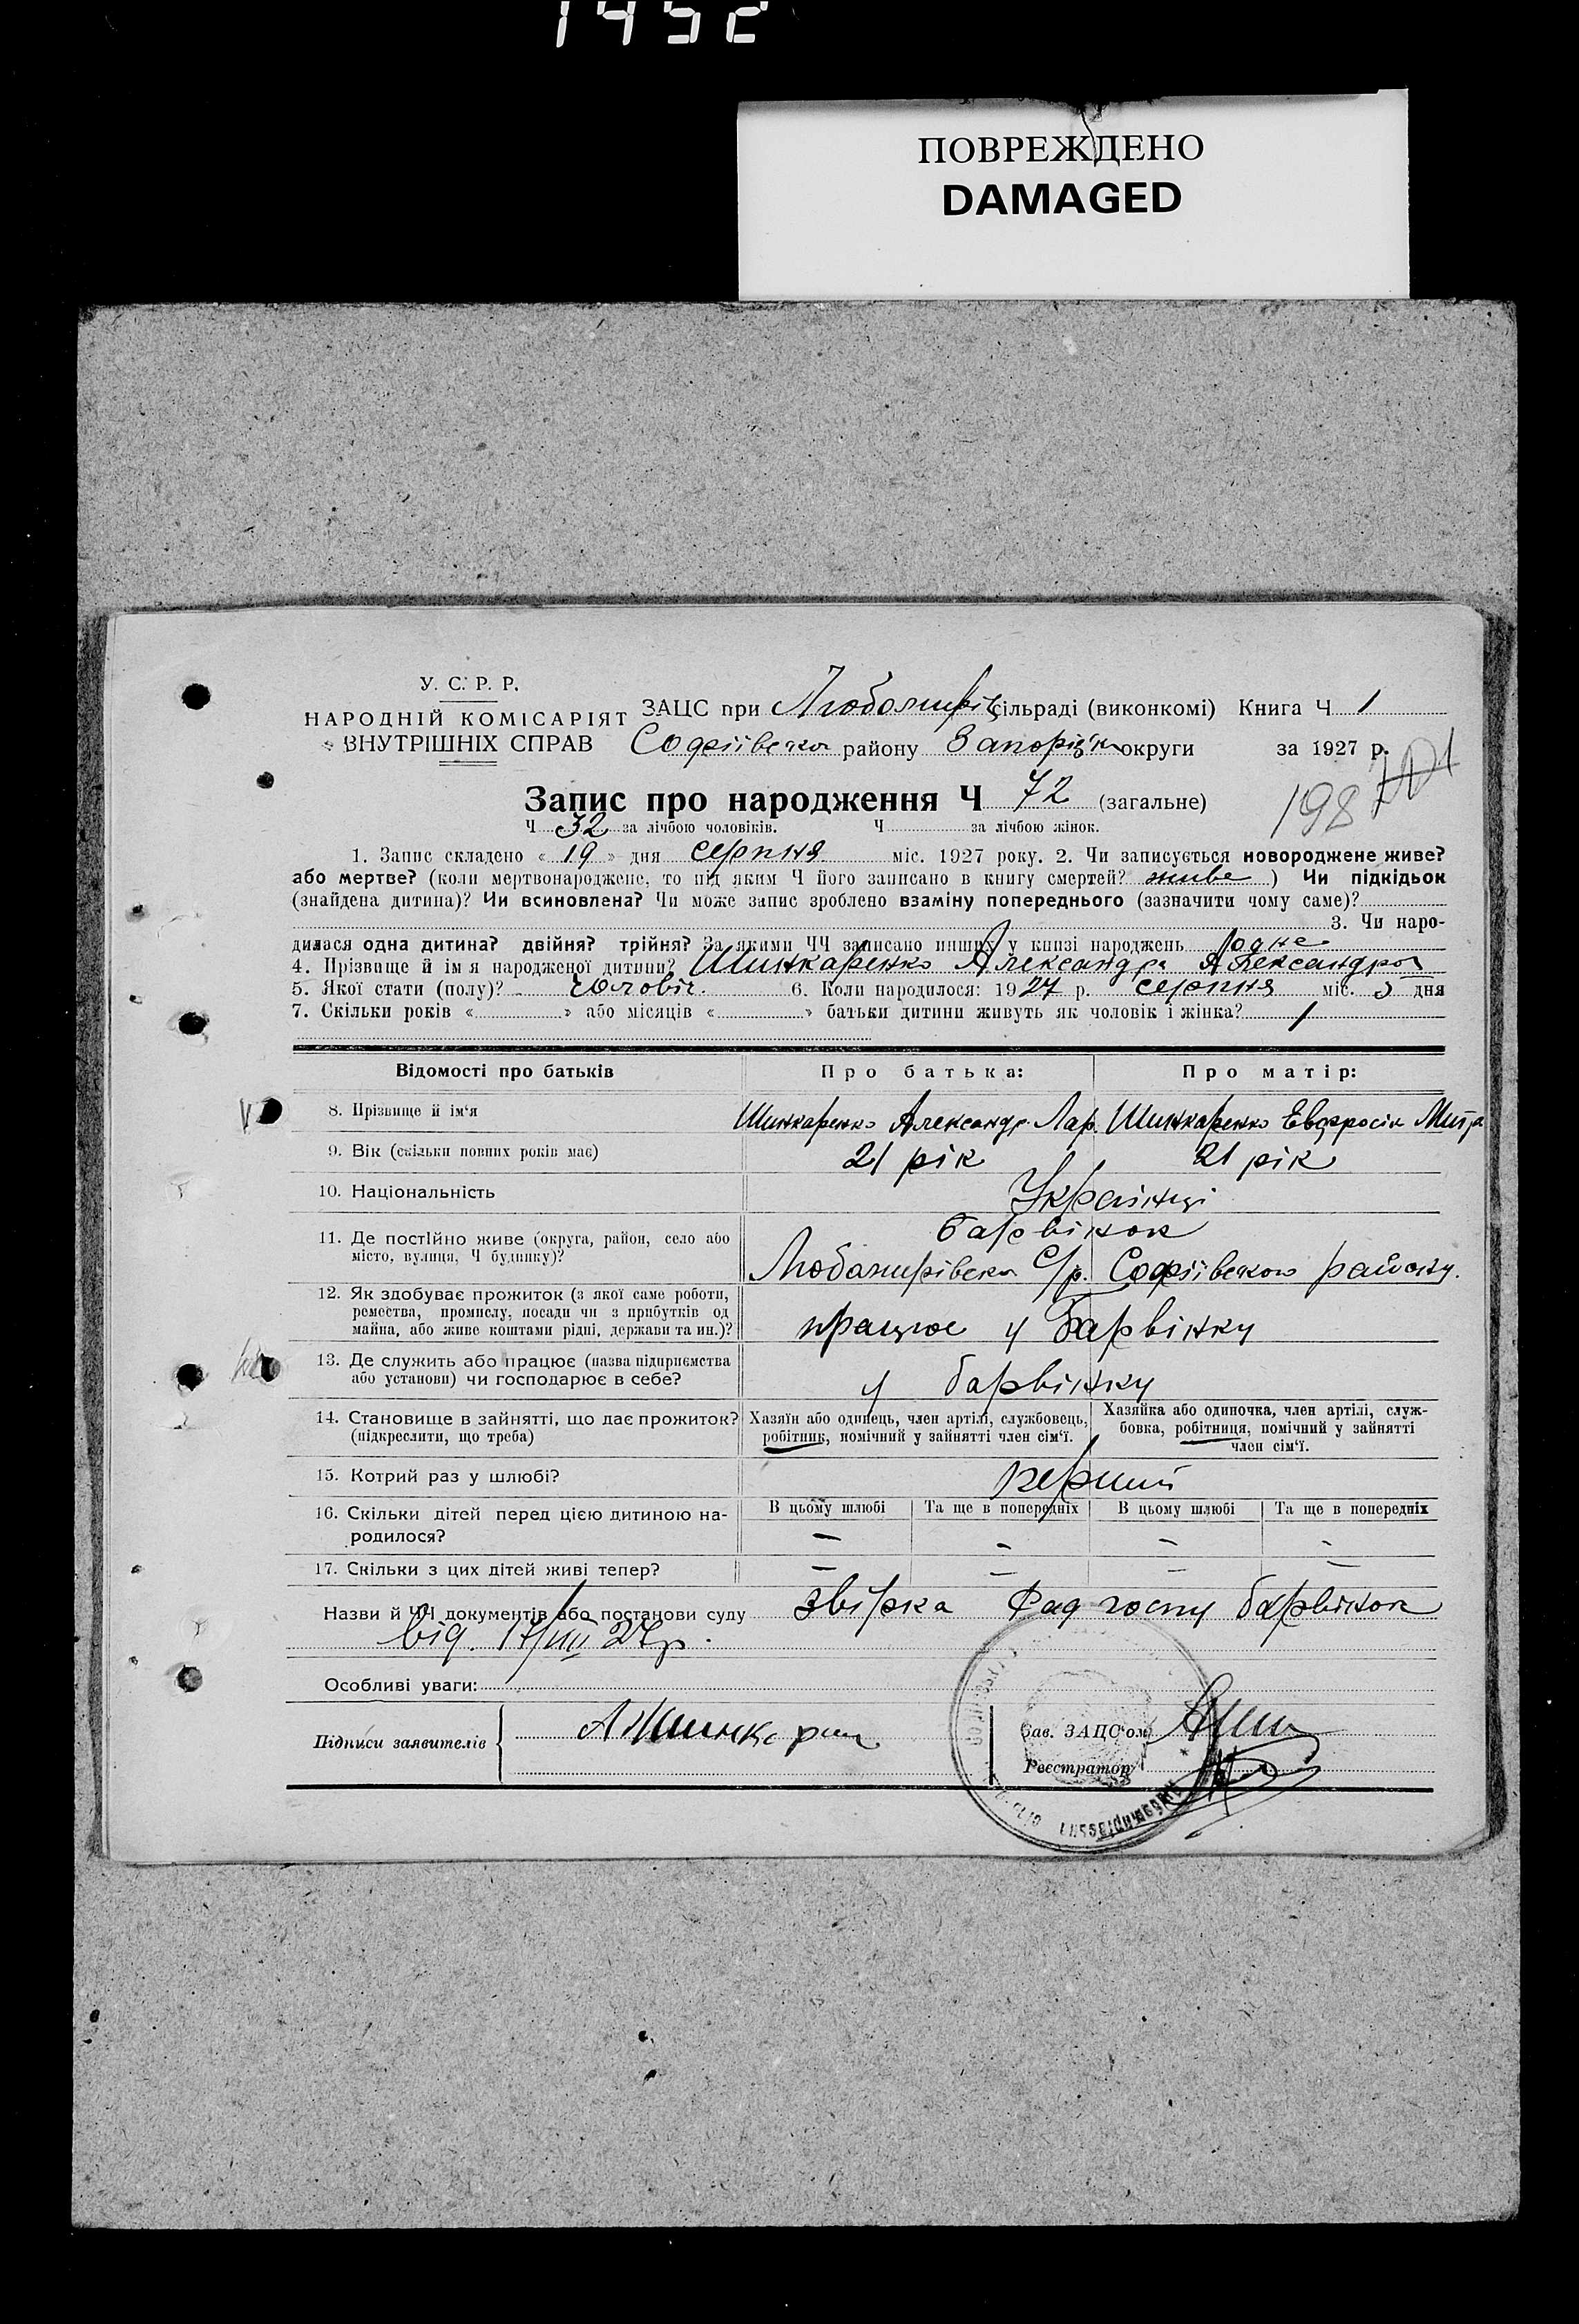 1452
ПОВРЕЖДЕНО
DAMAGED
У. С. Р. Р.
НАРОДНІЙ КОМІСАРІЯТ
ВНУТРІШНІХ СПРАВ
ЗАЦС при Любомирів сільраді (виконкомі) Книга Ч 1
Софіївськ району Запоріж округи за 1927 р.
Запис про народження Ч 72 (загальне)
198
Ч 32 за лічбою чоловіків. Ч за лічбою жінок.
1. Запис складено « 19 » дня серпня міс. 1927 року. 2. Чи записується новороджене живе?
або мертве? (коли мертвонароджене, то під яким Ч його записано в книгу смертей? живе ) Чи підкідьок
(знайдена дитина)? Чи всиновлена? Чи може запис зроблено взаміну попереднього (зазначити чому саме)?
3. Чи наро-
дилася одна дитина? двійня? трійня? За якими ЧЧ записано инших у книзі народжень одне
4. Прізвище й ім'я народженої дитини? Шинкаренко Александр Александров
5. Якої стати (полу)? Чоловіч. 6. Коли народилося: 1927 р. серпня міс. 5 дня
7. Скільки років « » або місяців « » батьки дитини живуть як чоловік і жінка? 1
Відомості про батьків Про батька: Про матір:
8. Прізвище й ім'я Шинкаренко Александр Лар. Шинкаренко Евфросін Митр
9. Вік (скільки повних років має) 21 рік 21 рік
10. Національність Українці
11. Де постійно живе (округа, район, село або
місто, вулиця, Ч будинку)?
барвінок
Любомирівськ С/р. Софіївского району.
12. Як здобуває прожиток (з якої саме роботи,
ремества, промислу, посади чи з прибутків од
майна, або живе коштами рідні, держави та ин.)?
працює у Барвінку
13. Де служить або працює (назва підприємства
або установи) чи господарює в себе?
у барвінку
14. Становище в зайнятті, що дає прожиток?
(підкреслити, що треба)
Хазяїн або одинець, член артілі, службовець,
робітник, помічний у зайнятті член сім'ї.
Хазяйка або одиночка, член артілі, служ-
бовка, робітниця, помічний у зайнятті
член сім'ї.
15. Котрий раз у шлюбі? перший
16. Скільки дітей перед цією дитиною на-
родилося?
В цьому шлюбі Та ще в попередніх В цьому шлюбі Та ще в попередніх
– – – –
17. Скільки з цих дітей живі тепер? – – – –
Назви й ЧЧ документів або постанови суду звірка Рад госпу барвінок
від. 17/VIII 27р.
Особливі уваги:
Підписи заявителів А Шинкарен
Зав. ЗАЦС'ом
Реєстратор